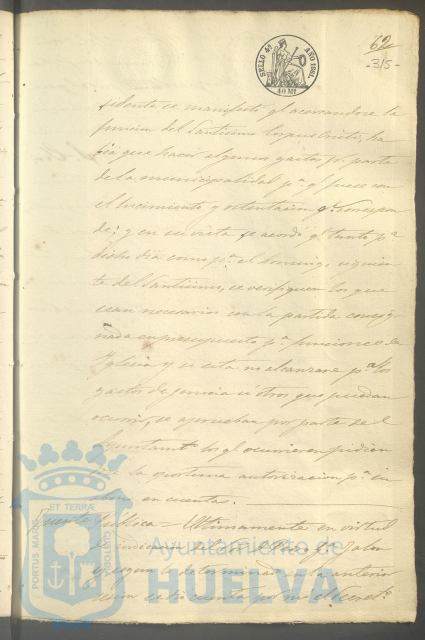 SELLO 4º AÑO 1861.
40 Mº
62
-315-
sidente se manifestó q! acercandose la
funcion del Santisimo Corpus Cristi, ha
bia que hacer algunos gastos pr. parte
de la municipalidad pª q! fuese con
el lucimiento y ostentacion q! correspon
de; y en su vista se acordó q! tanto pª
dicho dia como pª el Domingo siguien
te del Santisimo, se verifiquen los que
sean necesarios con la partida consig
nada en presupuesto pª funciones de
Yglesia y si esta no alcanzare pª los
gastos de que puedan
ocurrir, se aprueban por parte del
Ayuntamtº los q! ocurrieren pidien
la oportuna autorizacion pª in
en cuenta.
Fuente publica = Ultimamente en virtud
de
y segun lo determinado en la anterior
PORTUS MARIS ET TERRÆ CUSTODIA
Ayuntamiento de
HUELVA